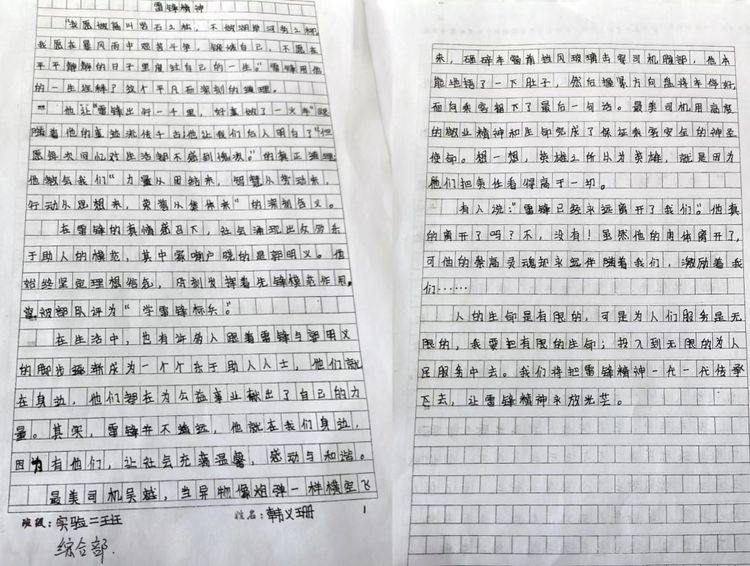 雷锋精神
"我愿做高山岩石之松,不做湖岸河旁之柳
我愿在暴风雨中艰苦斗争,锻炼自己,不愿在
平平静静的日子里度过自己的一生。"雷锋用他
的一生诠释了这个平凡而深刻的道理。
他让"雷锋出行一千里,好事做了一火车"跟
随着他的事迹流传千古他让我们后人明白了"但
愿每次回忆对生活都不感到愧疚。"的真正道理
他教会我们"力量从团结来,智慧从劳动来,
行动从思想来,荣誉从集体来"的深刻含义。
在雷锋的真情感召下,社会涌现出众多乐
于助人的模范,其中家喻户晓的是郭明义。他
始终坚定理想信念,时刻发挥着先锋模范作用。
部队评为"学雷锋标兵。"
在生活中,也有许多人跟着雷锋与郭明义
的脚步逐渐成为一个个乐于助人人士,他们就
在身边,他们都在为公益事业献出了自己的力
量。其实,雷锋并不遥远,他就在我们身边,
因为有他们,让社会充满温馨,感动与和谐。
最美司机吴斌,当异物像炮弹一样横空飞
班级:实验二班
姓名:韩义珊
1
综合部.
来,砸碎车窗前挡风玻璃击穿司机腹部,他本
能地捂了一下肚子,然后握紧方向盘将车停好,
面向乘客留下了最后一句话。最美司机用高度
的敬业精神和生命完成了保证乘客安全的神圣
使命。想一想,英雄之所以为英雄,就是因为
他们把责任看得高于一切。
有人说:"雷锋已经永远离开了我们。"他真
的离开了吗?不,没有!虽然他的肉体离开了,
可他的崇高灵魂却永远伴随着我们,激励着我
们……
人的生命是有限的,可是为人们服务是无
限的,我要把有限的生命;投入到无限的为人
民服务中去。我们将把雷锋精神一代一代传承
下去,让雷锋精神永放光芒。